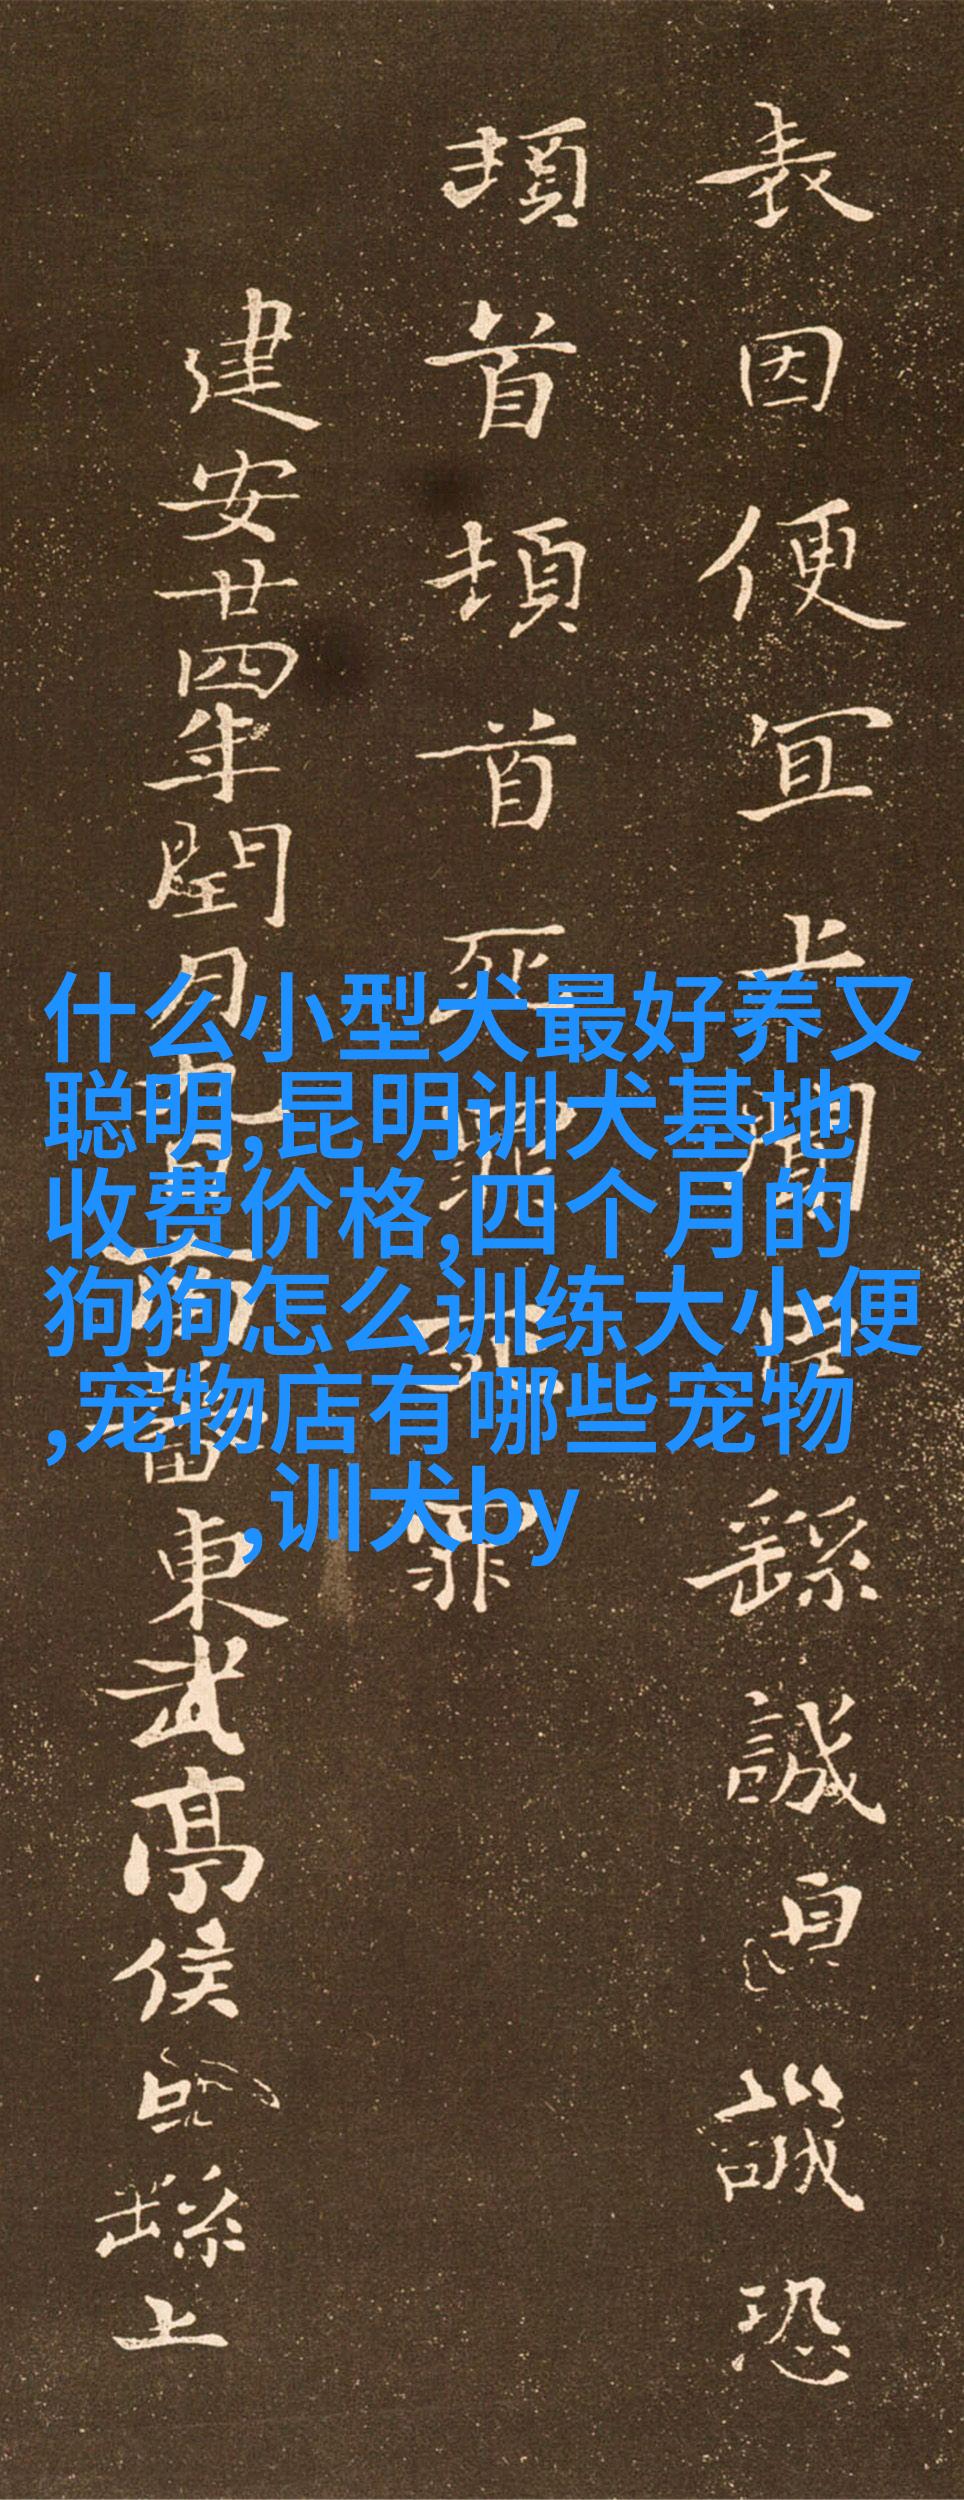 表因便宜上聞臣繇誠誠恐
頓首頓首死罪死罪
建安廿四年閏月九日南蕃東武亭侯臣繇上
什么小型犬最好养又
聪明,昆明训犬基地
收费价格,四个月的
狗狗怎么训练大小便
,宠物店有哪些宠物
,训犬by